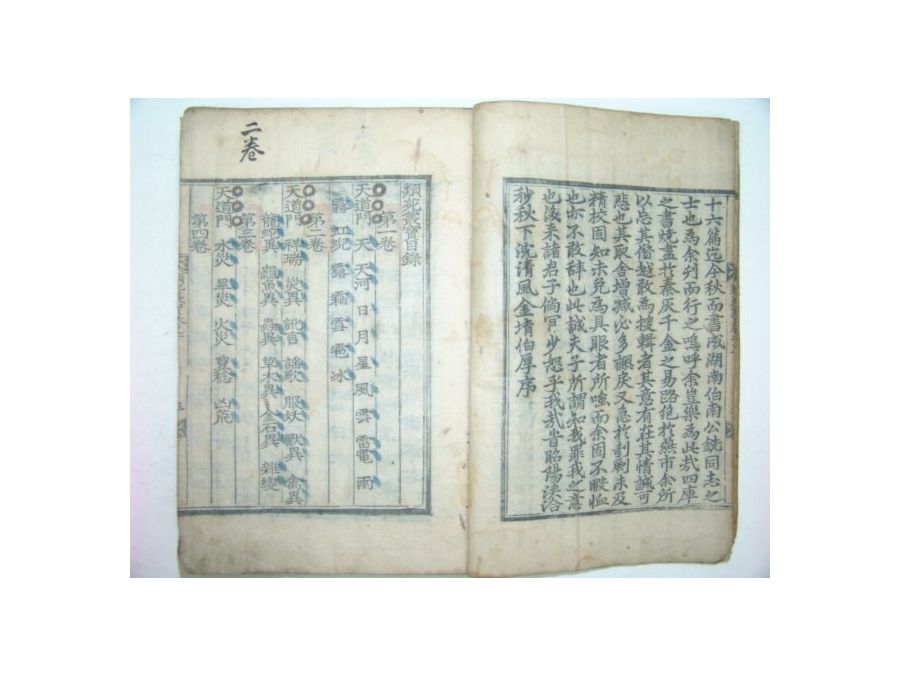 十六篇迄今秋而書成湖南伯南公銑同志之
士也為余刋而行之嗚呼余豈樂為此哉四庫
之書燒盡於秦灰千金之易路絕於燕市余所
以忘其僭越敢為搜輯者其意有在其情誠可
悲也其取舍增減必多謬戾又急於剞劂未及
精校固知未免為具眼者所嗤而余固不暇恤
也亦不敢辞也此誠夫子所謂知我罪我之意
也後来諸君子倘冝少恕乎我哉旹昭陽浹洽
秒秋下浣清風金堉伯厚序
類苑叢寶目錄
第一卷
天道門 天 天河 日 月 星 風 雲 雷電 雨
霧 虹蜺 露 霜 雪 雹 冰
第二卷
天道門 祥瑞 災異 訛言 謠歌 服妖 獸異 禽異
龍蛇異 龜魚異 蟲異 草木異 金石異 雜變
第三卷
天道門 水災 旱災 火災 豊稔 凶荒
第四卷
二卷